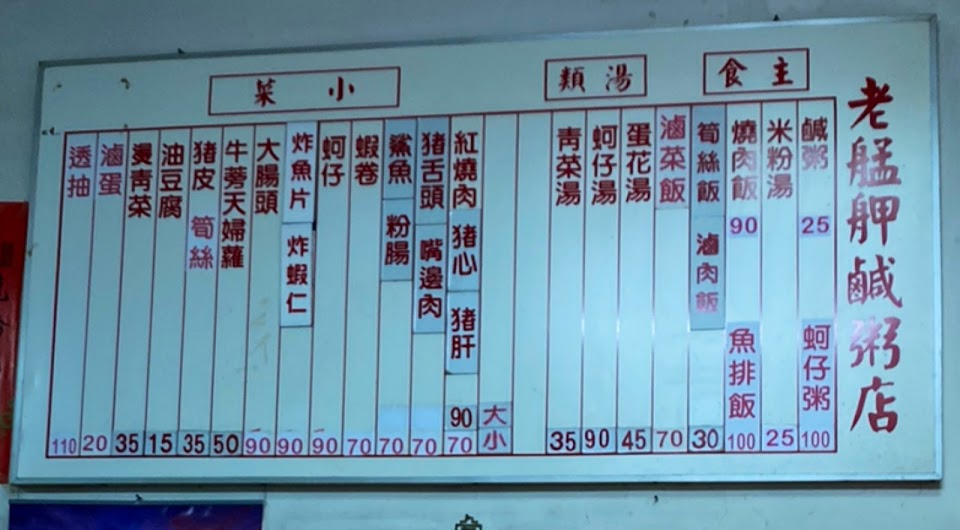 老艋舺鹹粥店
主食
鹹粥 25 蚵仔粥 100
米粉湯 25
燒肉飯 90 魚排飯 100
筍絲飯 滷肉飯 30
滷菜飯 70
湯類
蛋花湯 45
蚵仔湯 90
青菜湯 35
小菜
大 小
紅燒肉 豬心 豬肝 90 70
豬舌頭 嘴邊肉 70
鯊魚 粉腸 70
蝦卷 70
蚵仔 90
炸魚片 炸蝦仁 90
大腸頭 90
牛蒡天婦蘿 50
豬皮 筍絲 35
油豆腐 15
燙青菜 35
滷蛋 20
透抽 110